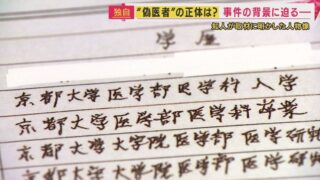 独自
“偽医者”の正体は？
事件の背景に迫る―
知人が取材に明かした人物像
学歴
京都大学医学部医学科 入学
京都大学医学部医学科 卒業
京都大学大学院医学部 医学研
京都大学大学院医学部 医学研